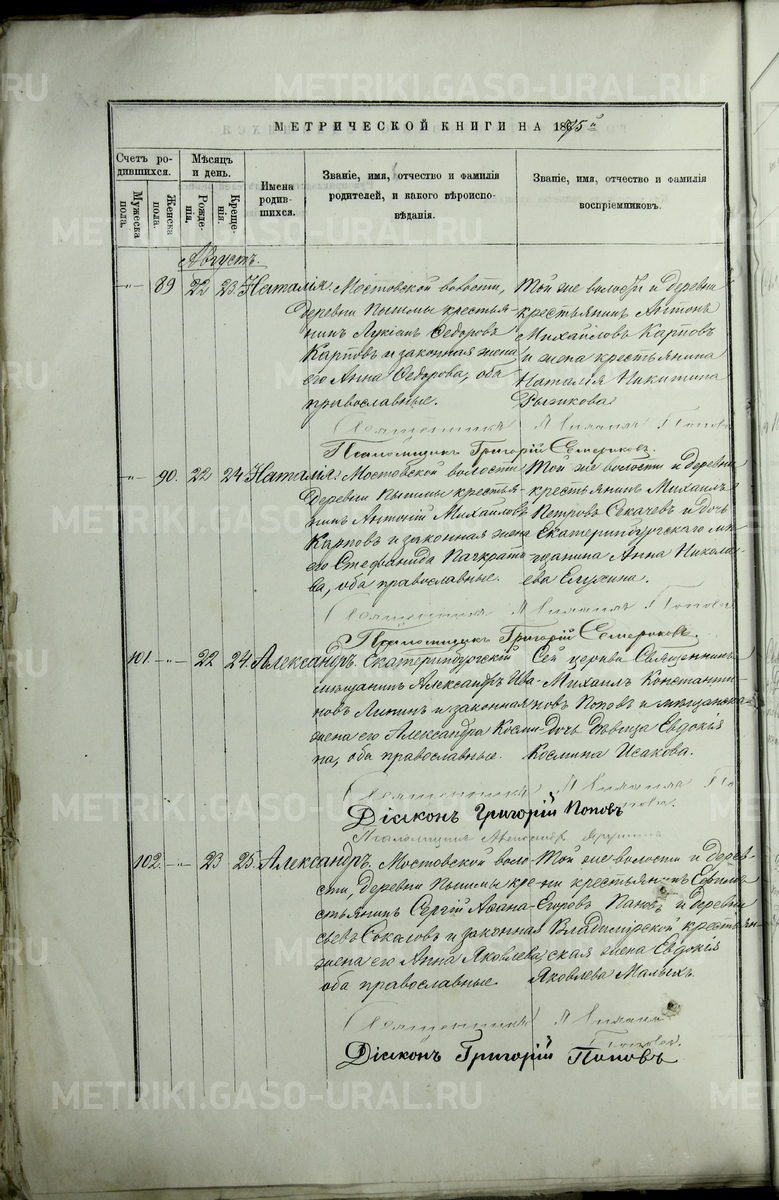 METRIKI.GASO-URAL.RU
МЕТРИЧЕСКОЙ КНИГИ НА 1875й
Счетъ ро-
дившихся.
Мужеска
пола.
Женска
пола.
Мѣсяцъ
и день.
Рожде-
нія.
Креще-
нія.
Имена
родив-
шихся.
Званіе, имя, отчество и фамилія
родителей, и какого вѣроиспо-
вѣданія.
Званіе, имя, отчество и фамилія
воспріемниковъ.
Августъ.
-"- 89 22 23 Наталія. Мостовской волости,
деревни Пышмы крестья-
нинъ Лукіанъ Федоровъ
Карповъ и законная жена
его Анна Федорова, оба
православные.
Той же волости и деревни
крестьянинъ Антонъ
Михайловъ Карповъ
и жена крестьянина
Наталія Никитина
Священникъ Михаилъ Поповъ
Псаломщикъ Григорій
-"- 90. 22 24 Наталія. Мостовской волости
деревни Пышмы крестья-
нинъ Антоній Михайловъ
Карповъ и законная жена
его Стефанида Панкрато-
ва, оба православные.
Той же волости и деревни
крестьянинъ Михаилъ
Петровъ Секачевъ и дочь
Екатеринбургскаго мѣ-
щанина Анна Никола-
ева
Священникъ Михаилъ Поповъ
Псаломщикъ Григорій
101. -"- 22 24. Александръ. Екатеринбургскій
мѣщанинъ Александръ Ива-
новъ и законная
жена его Александра Косми-
на, оба православные.
Сей церкви Священникъ
Михаилъ Константи-
новъ Поповъ и мѣщанская
дочь дѣвица Евдокія
Космина Исакова.
Священникъ Михаилъ
Поповъ.
Діаконъ Григорій Поповъ
Псаломщикъ
102. -"- 23 25. Александръ. Мостовской воло-
сти, деревни Пышмы кре-
стьянинъ Сергій Афана-
сьевъ и законная
жена его Анна Яковлева
оба православные.
Той же волости и дерев-
ни крестьянинъ
Егоровъ Пановъ и деревни
Владимірской крестьян-
ская жена Евдокія
Яковлева Малыхъ.
Священникъ Михаилъ
Поповъ.
Діаконъ Григорій Поповъ